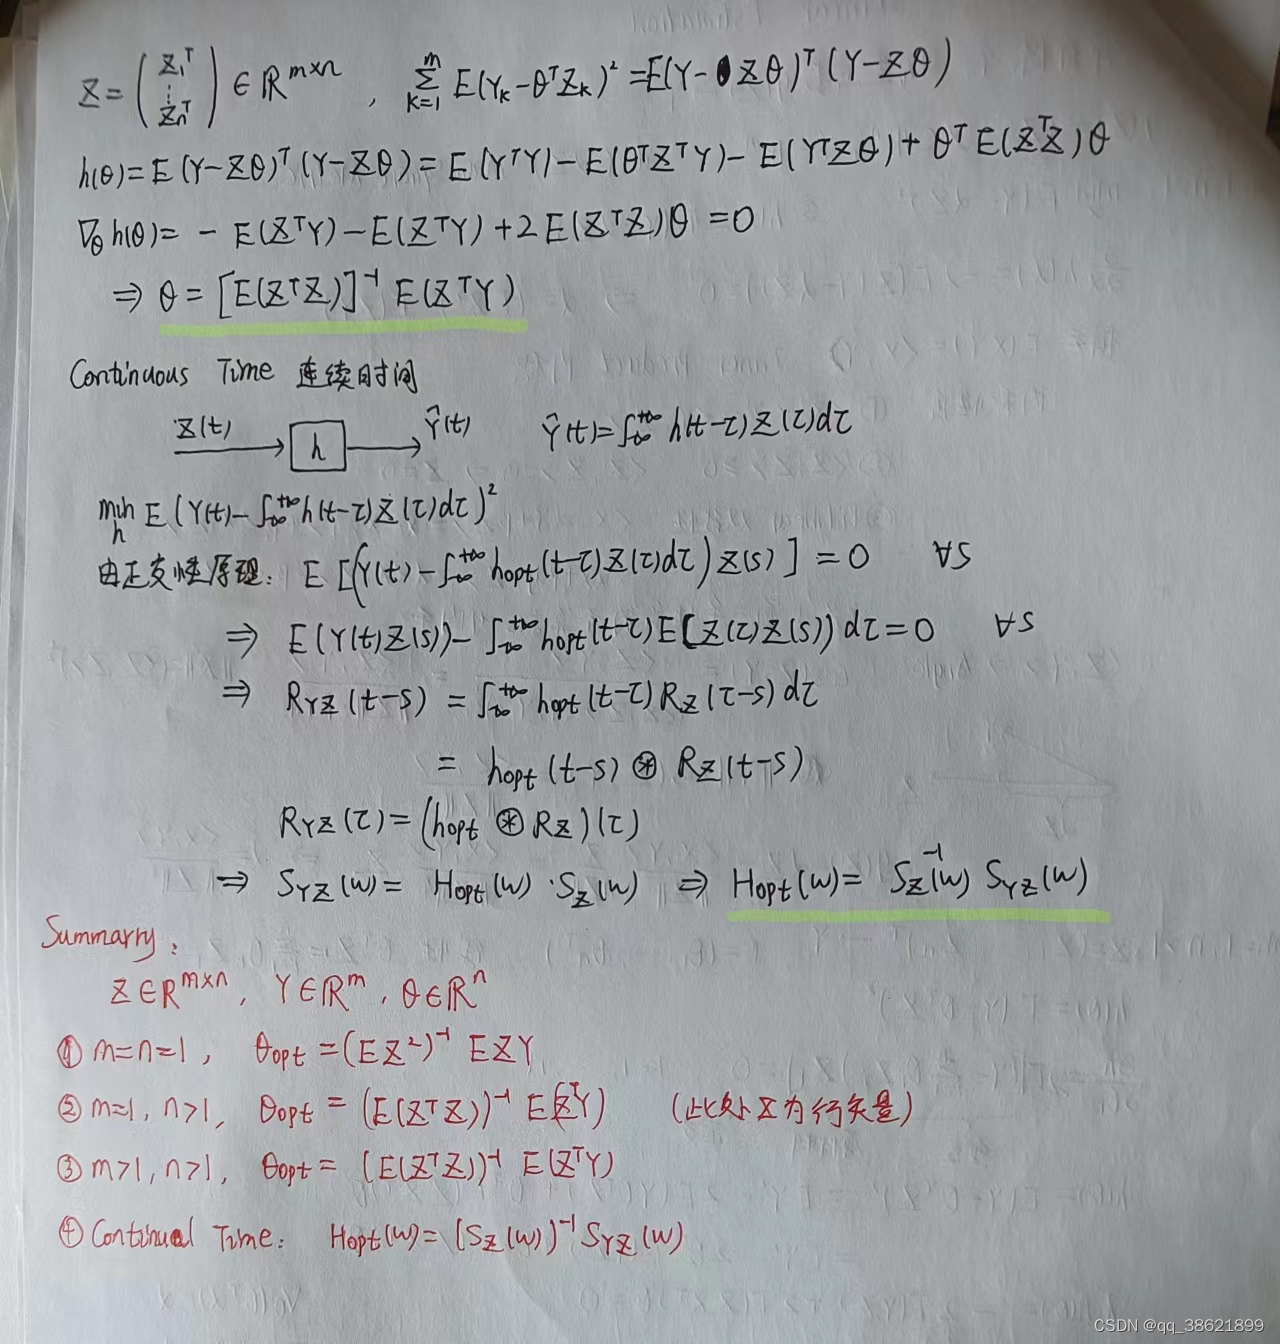 Z = (Z₁ᵀ ⋮ Zₙᵀ) ∈ ℝ^{m×n} , Σ_{k=1}^{m} E(Y_k − θᵀZ_k)² = E(Y − Zθ)ᵀ(Y − Zθ)
h(θ) = E(Y − Zθ)ᵀ(Y − Zθ) = E(YᵀY) − E(θᵀZᵀY) − E(YᵀZθ) + θᵀE(ZᵀZ)θ
∇_θ h(θ) = − E(ZᵀY) − E(ZᵀY) + 2E(ZᵀZ)θ = 0
⇒ θ = [E(ZᵀZ)]⁻¹ E(ZᵀY)
Continuous Time 连续时间
Z(t) h Ŷ(t) Ŷ(t) = ∫_{-∞}^{+∞} h(t−τ)Z(τ)dτ
min_h E(Y(t) − ∫_{-∞}^{+∞} h(t−τ)Z(τ)dτ)²
由正交性原理: E[(Y(t) − ∫_{-∞}^{+∞} h_opt(t−τ)Z(τ)dτ)Z(s)] = 0 ∀s
⇒ E(Y(t)Z(s)) − ∫_{-∞}^{+∞} h_opt(t−τ)E(Z(τ)Z(s))dτ = 0 ∀s
⇒ R_YZ(t−s) = ∫_{-∞}^{+∞} h_opt(t−τ)R_Z(τ−s)dτ
= h_opt(t−s) ⊛ R_Z(t−s)
R_YZ(τ) = (h_opt ⊛ R_Z)(τ)
⇒ S_YZ(w) = H_opt(w) · S_Z(w) ⇒ H_opt(w) = S_Z⁻¹(w) S_YZ(w)
Summarry:
Z∈ℝ^{m×n}, Y∈ℝ^m, θ∈ℝ^n
① m=n=1, θ_opt = (EZ²)⁻¹ EZY
② m=1, n>1, θ_opt = (E(ZᵀZ))⁻¹ E(ZᵀY) (此处Z为行矢量)
③ m>1, n>1, θ_opt = (E(ZᵀZ))⁻¹ E(ZᵀY)
④ Continual Time: H_opt(w) = (S_Z(w))⁻¹ S_YZ(w)
CSDN @qq_38621899